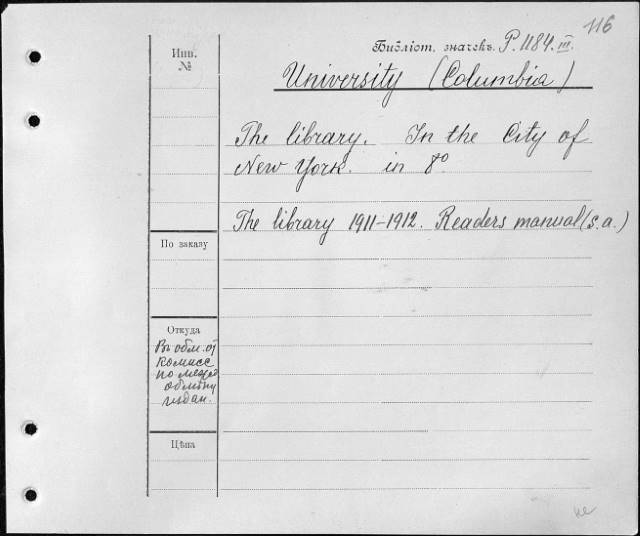 116
Библіот. значекъ. P. 1184. III.
Инв.
№
University (Columbia)
The library. In the City of
New York. in 8º
The library 1911-1912. Readers manual (s.a.)
По заказу
Откуда
Въ обм. от
Комисс
по межд
обмѣну
издан.
Цѣна